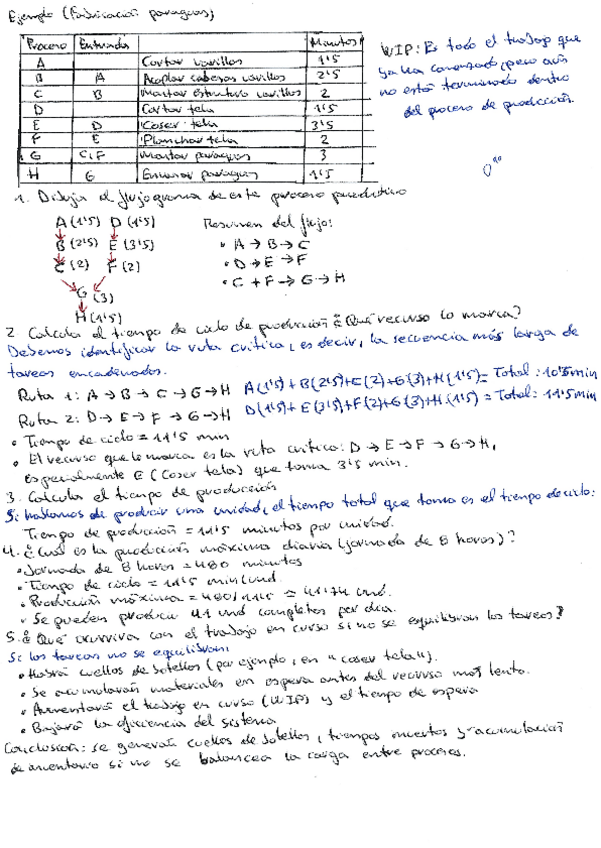 Ejemplo (Fabricación paraguas)
Proceso Entradas Minutos
A Cortar varillas 1'5
B A Acoplar cabezas varillas 2'5
C B Montar estructura varillas 2
D Cortar tela 1'5
E D Coser tela 3'5
F E Planchar tela 2
G C,F Montar paraguas 3
H G Envasar paraguas 1'5
WIP: Es todo el trabajo que
ya ha comenzado, pero aún
no está terminado dentro
del proceso de producción.
1. Dibuja el flujograma de este proceso productivo
A (1'5) D (1'5) Resumen del flujo:
B (2'5) E (3'5) • A → B → C
C (2) F (2) • D → E → F
G (3) • C + F → G → H
H (1'5)
2. Calcula el tiempo de ciclo de producción ¿Qué recurso lo marca?
Debemos identificar la ruta crítica, es decir, la secuencia más larga de
tareas encadenadas.
Ruta 1: A → B → C → G → H A(1'5)+B(2'5)+C(2)+G(3)+H(1'5)= Total: 10'5 min
Ruta 2: D → E → F → G → H D(1'5)+E(3'5)+F(2)+G(3)+H(1'5)= Total: 11'5 min
• Tiempo de ciclo = 11'5 min
• El recurso que lo marca es la ruta crítica: D → E → F → G → H,
especialmente E (Coser tela) que toma 3'5 min.
3. Calcula el tiempo de producción
Si hablamos de producir una unidad, el tiempo total que toma es el tiempo de ciclo:
Tiempo de producción = 11'5 minutos por unidad.
4. ¿Cuál es la producción máxima diaria (jornada de 8 horas)?
• Jornada de 8 horas = 480 minutos
• Tiempo de ciclo = 11'5 min/und.
• Producción máxima = 480/11'5 = 41'74 und.
• Se pueden producir 41 und completas por día.
5. ¿Qué ocurriría con el trabajo en curso si no se equilibran las tareas?
Si las tareas no se equilibran:
• Habrá cuellos de botellas (por ejemplo, en "coser tela").
• Se acumularán materiales en espera antes del recurso más lento.
• Aumentará el trabajo en curso (WIP) y el tiempo de espera
• Bajará la eficiencia del sistema
Conclusión: se generan cuellos de botellas, tiempos muertos y acumulación
de inventario si no se balancea la carga entre procesos.